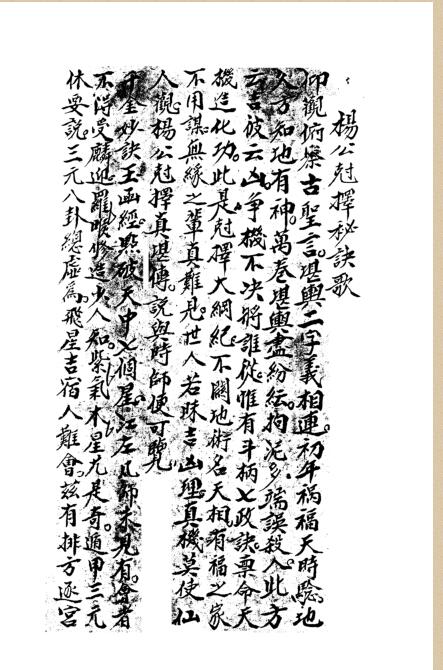 楊公尅擇秘訣歌
仰觀俯察古聖言。堪輿二字義相連。初年禍福天時驗。地
人方知地有神。萬卷堪輿盡紛紜。拘泥多端誤殺人。此方
云吉彼云凶。爭機不决將誰從。惟有斗柄七政訣。禀命天
機造化功。此是尅擇大綱紀。不關地術名天相。有福之家
不用謀。無緣之輩真難見。世人若昧吉凶理。真機莫使仙
人觀。楊公尅擇真堪傳。說與時師便可覽。
千金妙訣玉函經。點破天中七個星。江左凡師未見有。會者
不得受麟迎。羅睺修造少人知。紫氣木星尤是奇。遁甲三元
休要説。三元八卦總虛爲。飛星吉宿人難會。茲有排方逐宮